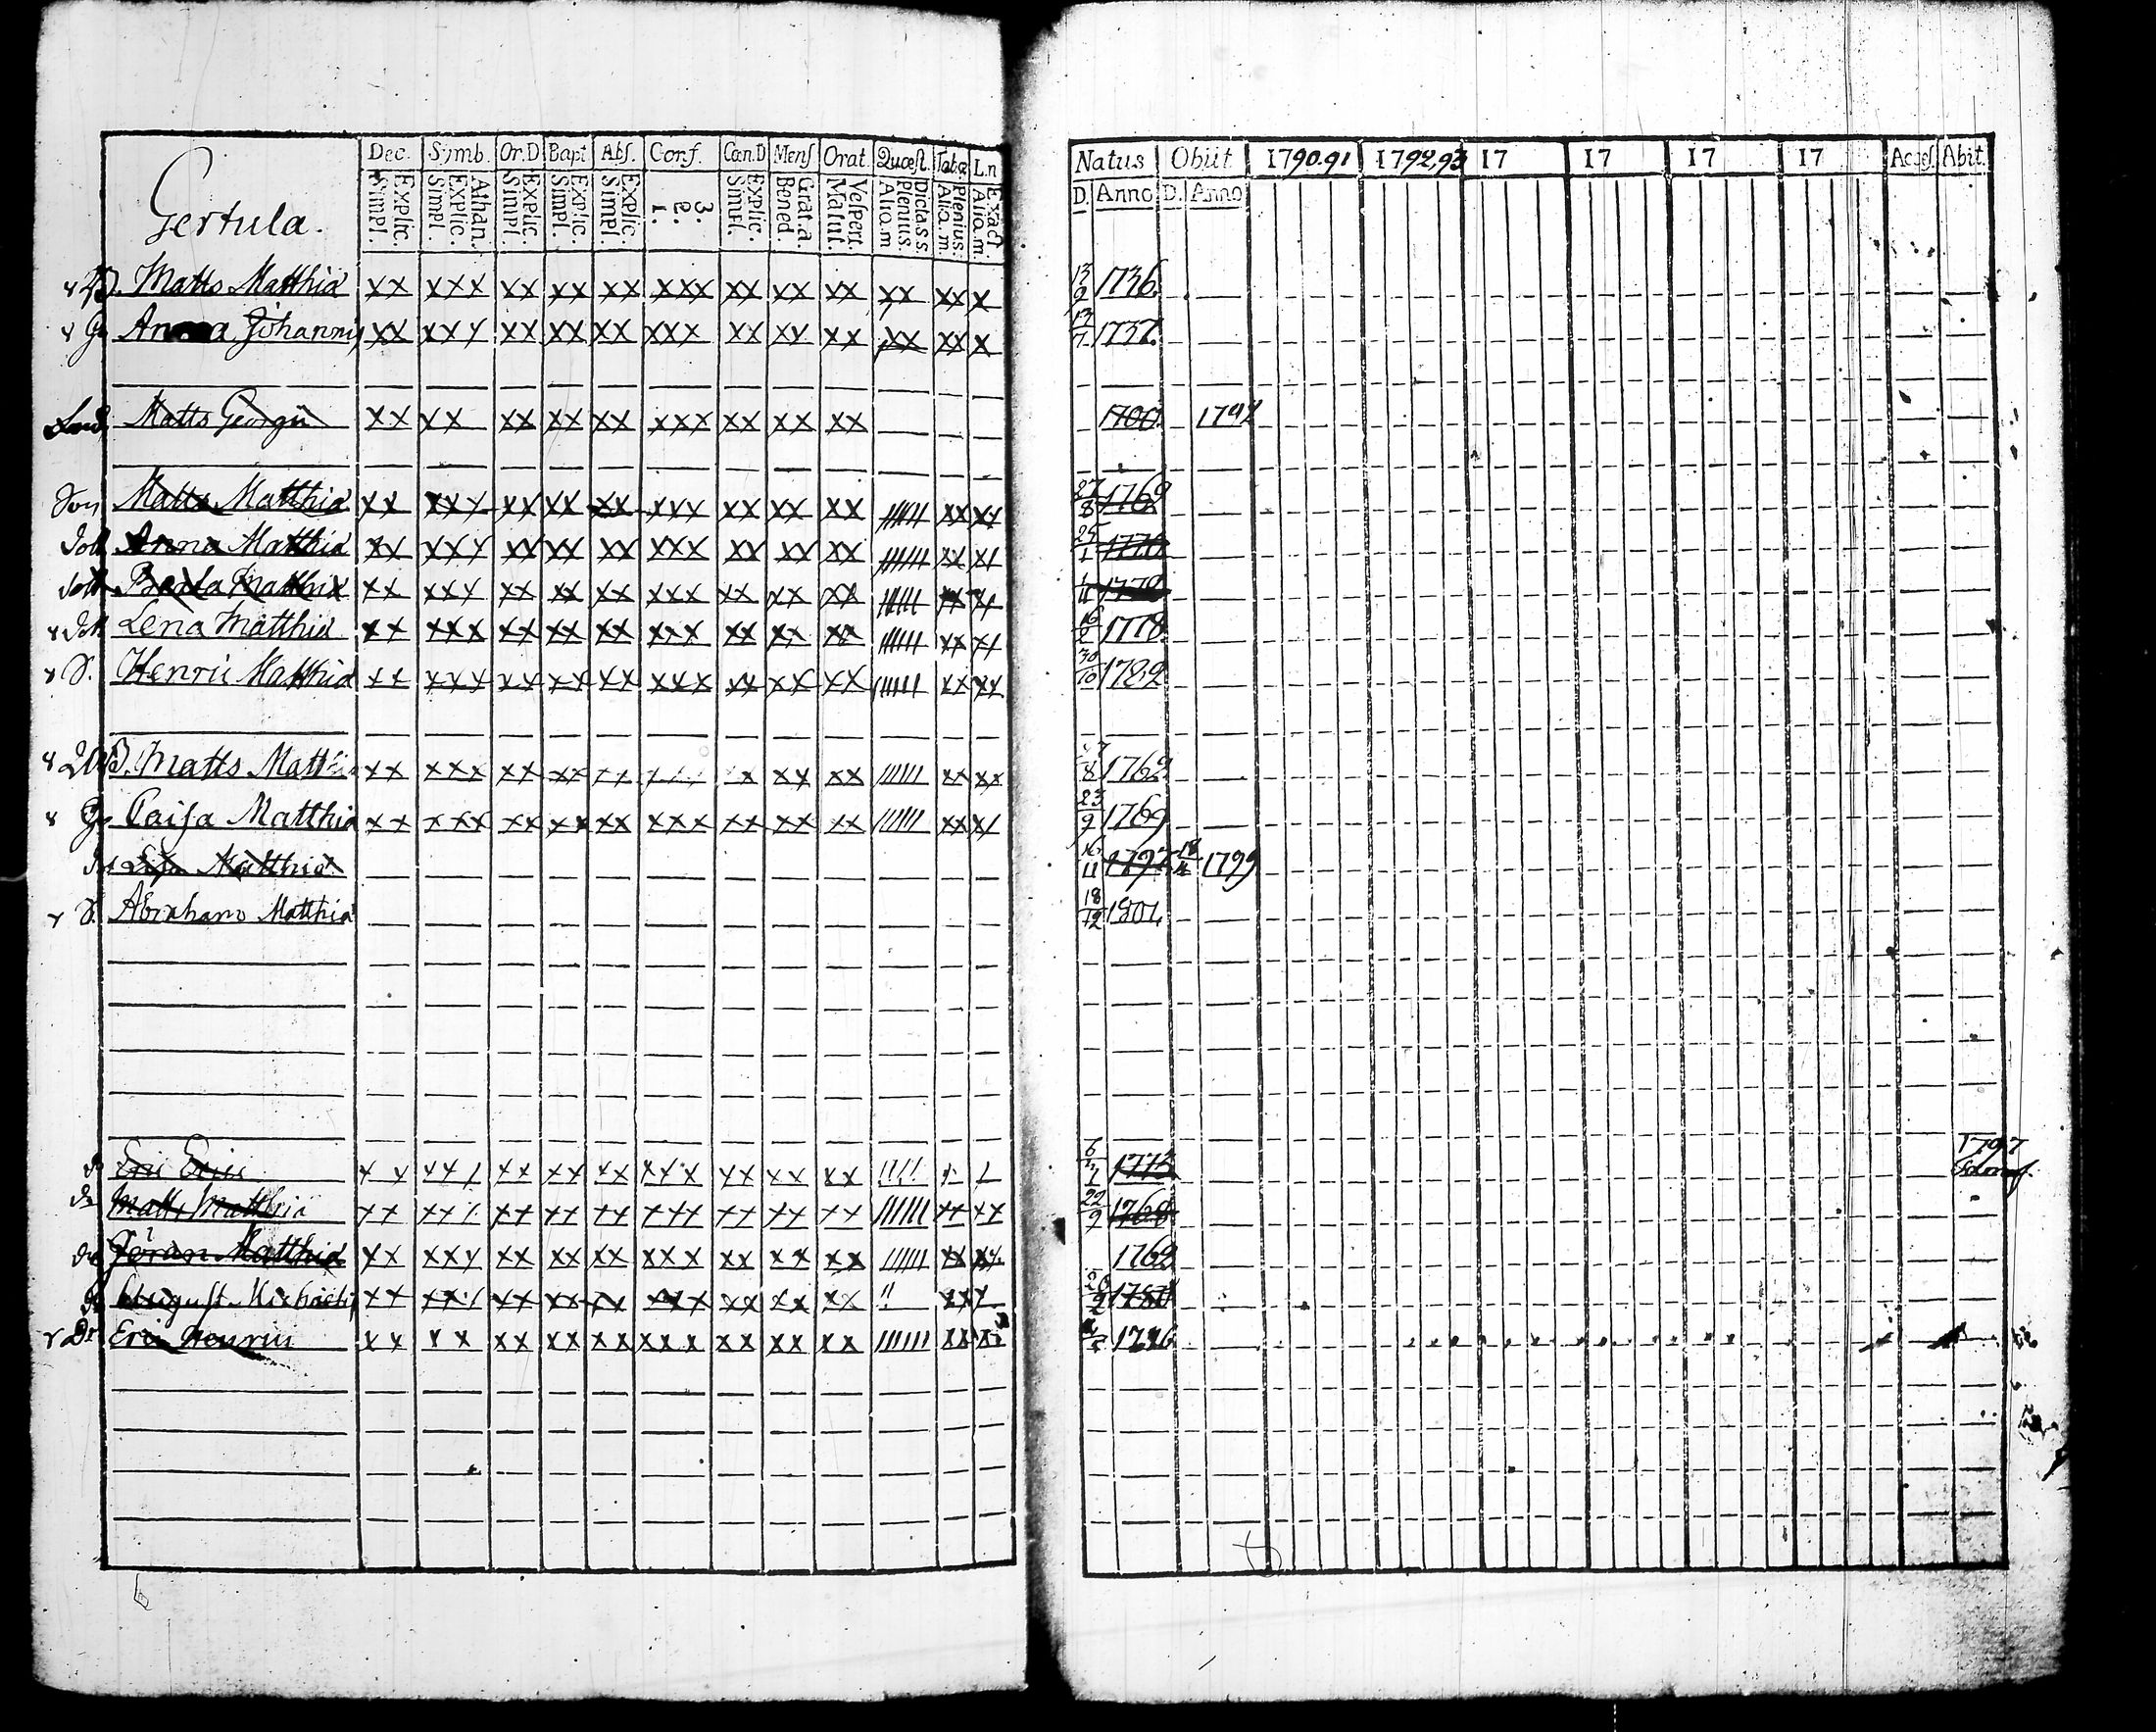 Gertula.
Dec. Simb. Or.D Bapt. Abs. Conf. Cœn.D Mens Orat. Quæst. Tabœ L.n
Simpl. Explic. Simpl. Explic. Athan. Simpl. Explic. Simpl. Explic. Simpl. Explic. 1. 2. 3. Simpl. Explic. Bened. Grat.a. Matut. Vespert. Alio.m Plenius. Dicta.s.s. Alio.m. Plenius. Alio.m. Exact
Natus Obiit 1790.91 1792,93 17 17 17 17 Acces. Abit.
D. Anno D. Anno
Matts Matthiæ xx xxx xx xx xx xxx xx xx xx xx xx x 13/9 1736.
Anna Johannis xx xxx xx xx xx xxx xx xx xx xx xx x 13/7 1737.
Matts Georgii xx xx xx xx xx xxx xx xx xx 1700. 1792
Son Matts Matthiæ xx xxx xx xx xx xxx xx xx xx ////// xx xx 27/8 1769
Dott Anna Matthiæ xx xxx xx xx xx xxx xx xx xx ////// xx x/ 25/1
Dott Matthiæ xx xxx xx xx xx xxx xx xx xx ////// xx x/
Dott. Lena Matthiæ xx xxx xx xx xx xxx xx xx xx ////// xx x/ 16/2 1778
S. Henric Matthiæ xx xxx xx xx xx xxx xx xx xx ////// xx xx 30/10 1782
B. Matts Matthiæ xx xxx xx xx xx xx xx ////// xx xx 1769
Caisa Matthiæ xx xxx xx xx xx xxx xx xx xx ////// xx x/ 23/9 1769
Lisa Matthiæ 16/11 1797 1799
S. Abraham Matthiæ 18/12 1801
Eric Erici xx xx/ xx xx xx xxx xx xx xx 1773 1797
Matts Matthiæ xx xx/ xx xx xx xxx xx xx xx ////// xx xx 22/9 1768
Jöran Matthiæ xx xxx xx xx xx xxx xx xx xx ////// xx xx 1762
August Michaelis xx xx/ xx xx xx xxx xx xx xx //
Eric Henrici xx xx xx xx xx xxx xx xx xx ////// xx